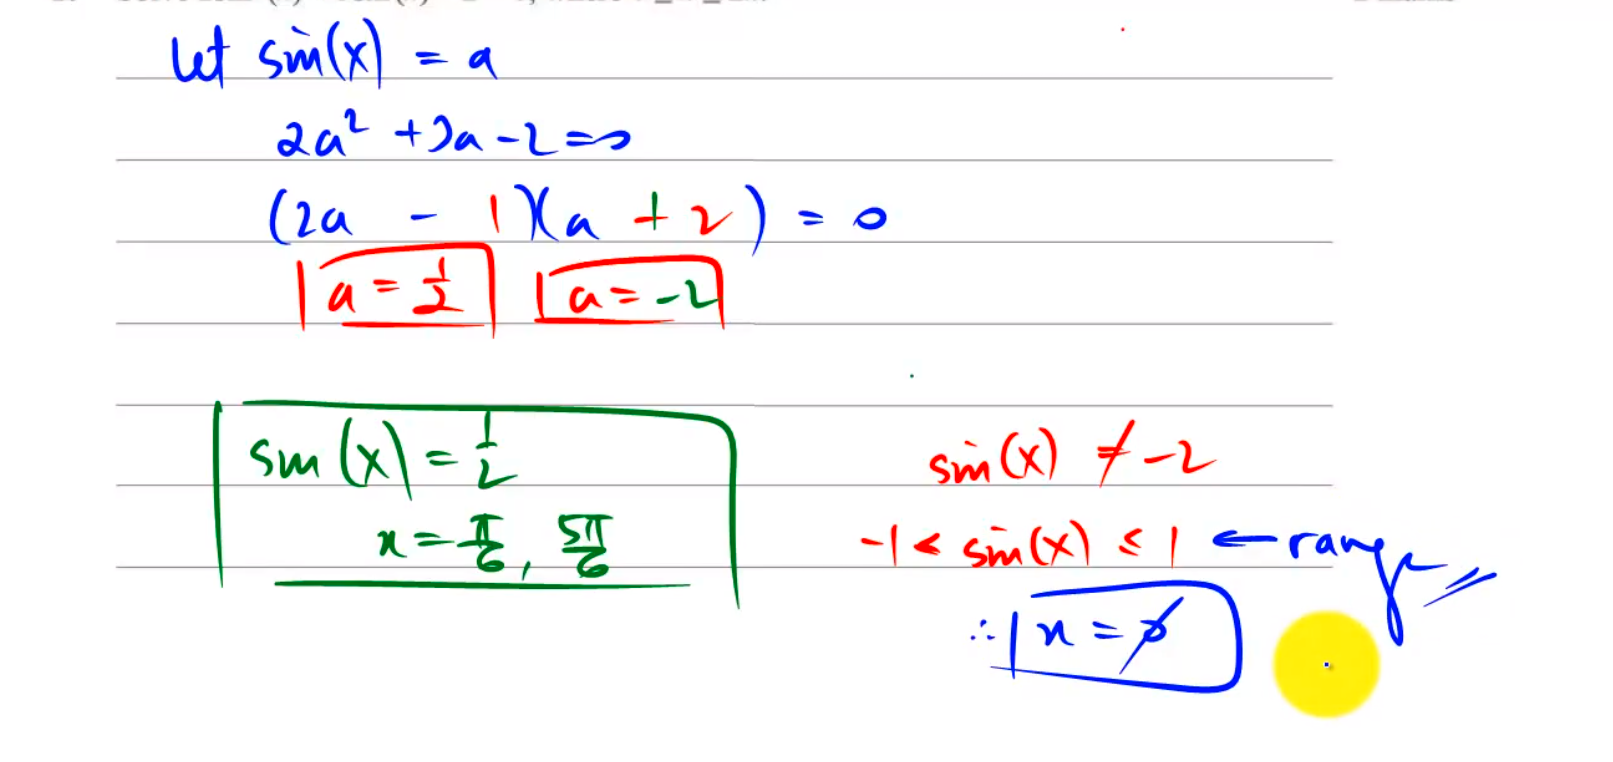 let sin(x) = a
2a² + 3a - 2 = 0
(2a - 1)(a + 2) = 0
a = 1/2 a = -2
sin(x) = 1/2
sin(x) ≠ -2
x = π/6, 5π/6
-1 < sin(x) ≤ 1 ← range
∴ x = ∅